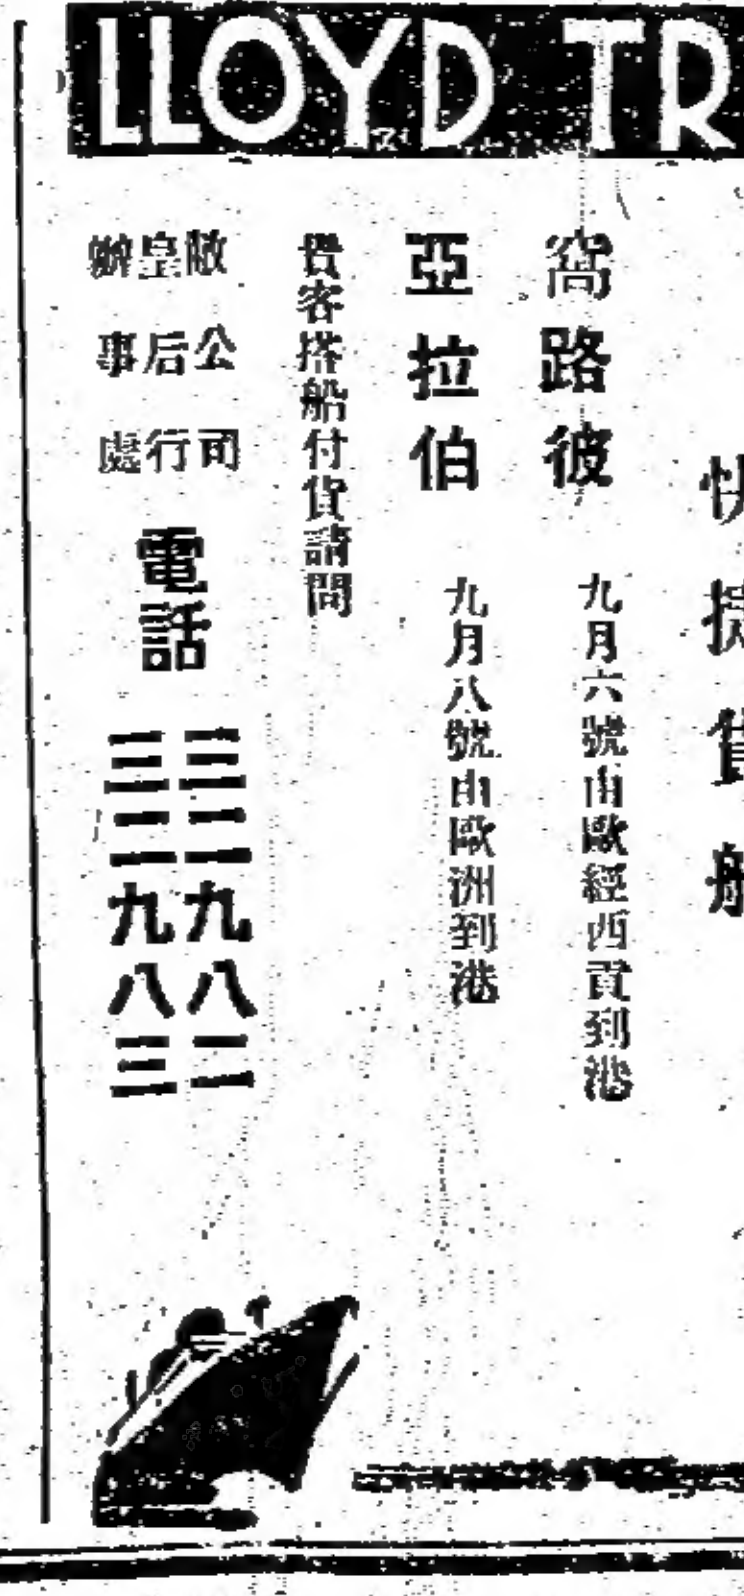 LLOYD TR
快捷貨船
窩路彼 九月六號由歐經西貢到港
亞拉伯 九月八號由歐洲到港
貴客搭船付貨請問
敝公司
皇后行
辦事處
電話
三二九八二
三二九八三